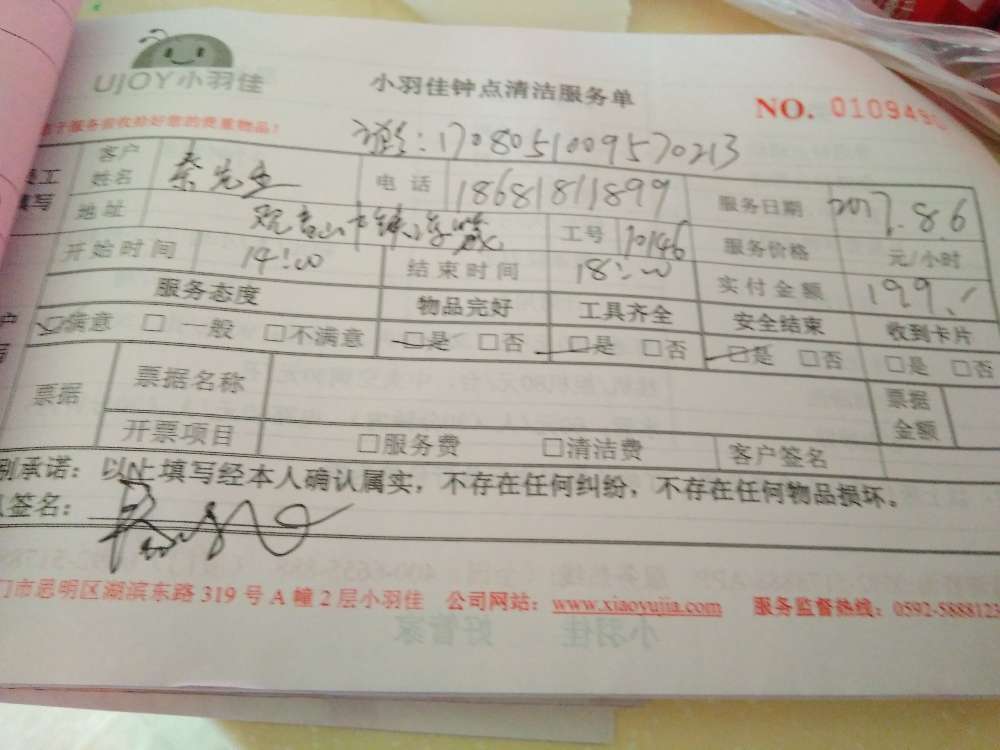 UJOY小羽佳
小羽佳钟点清洁服务单
NO. 010949
服务前收拾好您的贵重物品!
1708051009570213
客户姓名 秦先生 电话 18681811899 服务日期 2017.8.6
地址 工号 10146 服务价格 元/小时
开始时间 14:00 结束时间 18:00 实付金额 199.
服务态度 物品完好 工具齐全 安全结束 收到卡片
满意 □一般 □不满意 □是 □否 □是 □否 □是 □否 □是 □否
票据 票据名称 票据金额
开票项目 □服务费 □清洁费 客户签名
别承诺:以上填写经本人确认属实,不存在任何纠纷,不存在任何物品损坏。
签名:
门市思明区湖滨东路 319 号 A 幢 2 层小羽佳 公司网站:www.xiaoyujia.com 服务监督热线:0592-5888123
小羽佳 好管家